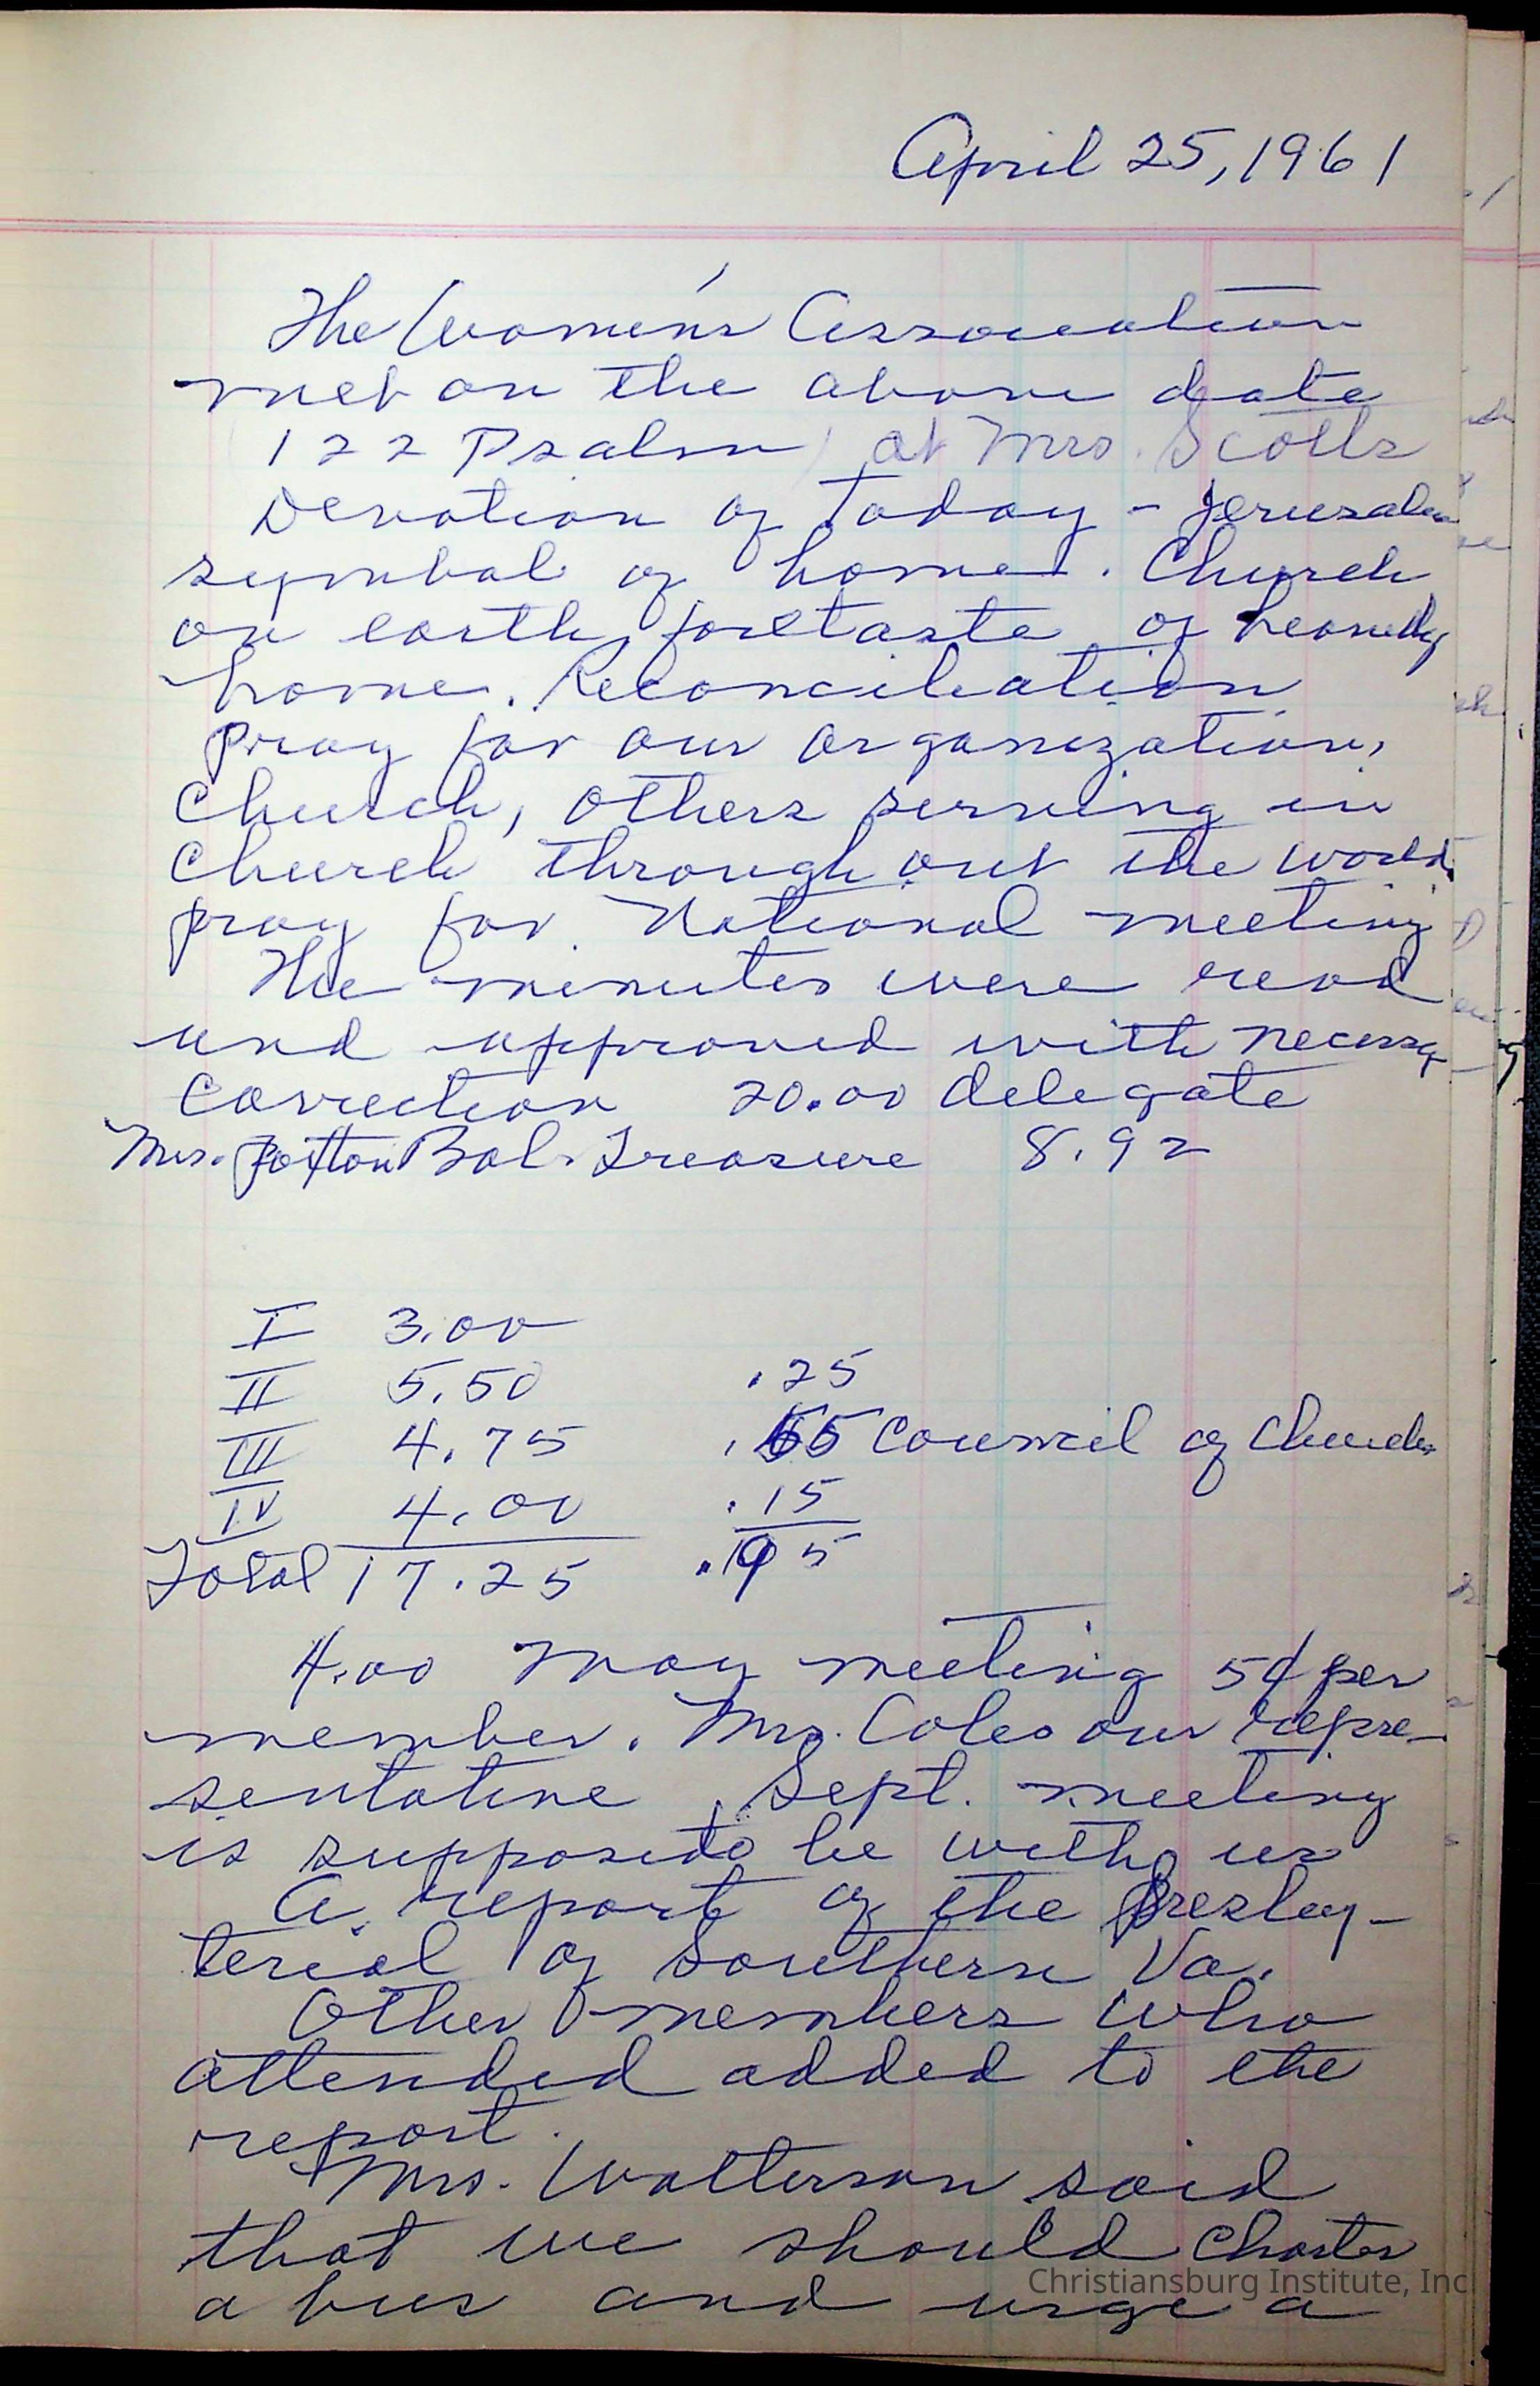 April 25, 1961
The Women's Association
met on the above date
122 Psalm) at Mrs. Scotts
Devotion of Today - Jerusalem
symbol of home. Church
on earth, foretaste of heavenly
home. Reconciliation
Pray for our organization,
Church, others serving in
Church through out the world.
pray for National meeting
The minutes were read
and approved with necessary
Correction 20.00 delegate
Mrs. Bal. Treasure 8.92
I 3.00
II 5.50 .25
III 4.75 .55 Council of Church
IV 4.00 .15
Total 17.25 .95
4.00 May meeting 5¢ per
member. Mrs. Coles our repre-
sentative, Sept. meeting
is suppose to be with us
A report of the Presby-
terial of Southern Va.
Other members who
attended added to the
report.
Mrs. Watterson said
that we should Charter
a bus and urge a
Christiansburg Institute, Inc